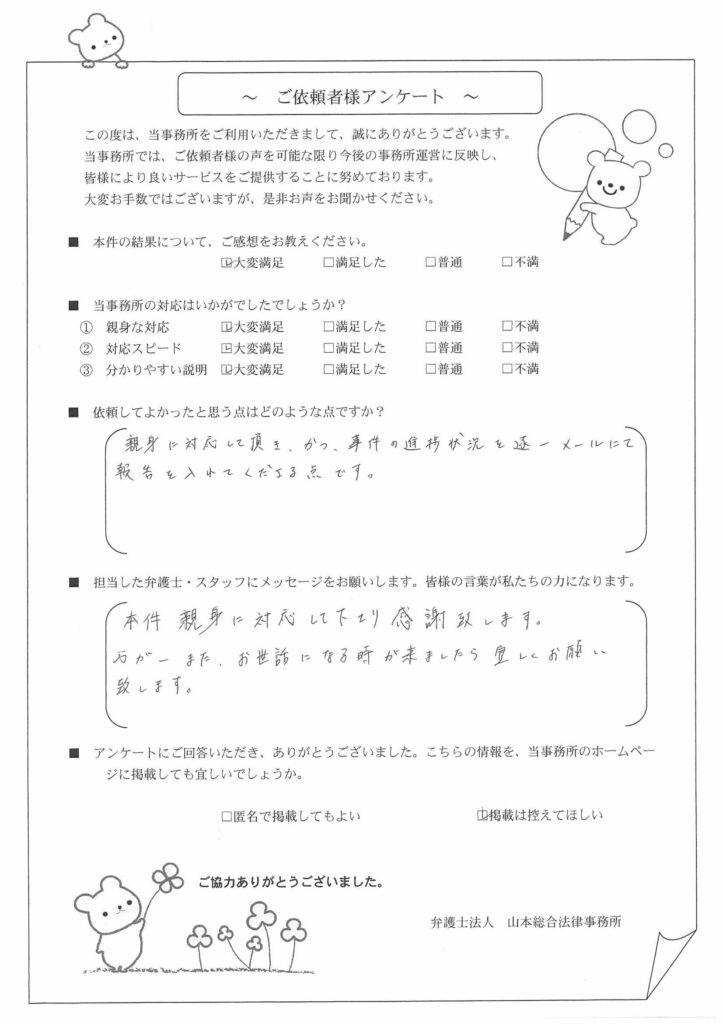 ～ ご依頼者様アンケート ～
この度は、当事務所をご利用いただきまして、誠にありがとうございます。
当事務所では、ご依頼者様の声を可能な限り今後の事務所運営に反映し、
皆様により良いサービスをご提供することに努めております。
大変お手数ではございますが、是非お声をお聞かせください。
■ 本件の結果について、ご感想をお教えください。
☑大変満足 □満足した □普通 □不満
■ 当事務所の対応はいかがでしたでしょうか？
① 親身な対応 ☑大変満足 □満足した □普通 □不満
② 対応スピード ☑大変満足 □満足した □普通 □不満
③ 分かりやすい説明 ☑大変満足 □満足した □普通 □不満
■ 依頼してよかったと思う点はどのような点ですか？
親身に対応して頂き、かつ、事件の進捗状況を逐一メールにて
報告を入れてくださる点です。
■ 担当した弁護士・スタッフにメッセージをお願いします。皆様の言葉が私たちの力になります。
本件 親身に対応して下さり感謝致します。
万が一また、お世話になる時が来ましたら宜しくお願い
致します。
■ アンケートにご回答いただき、ありがとうございました。こちらの情報を、当事務所のホームペー
ジに掲載しても宜しいでしょうか。
□匿名で掲載してもよい ☑掲載は控えてほしい
ご協力ありがとうございました。
弁護士法人 山本総合法律事務所